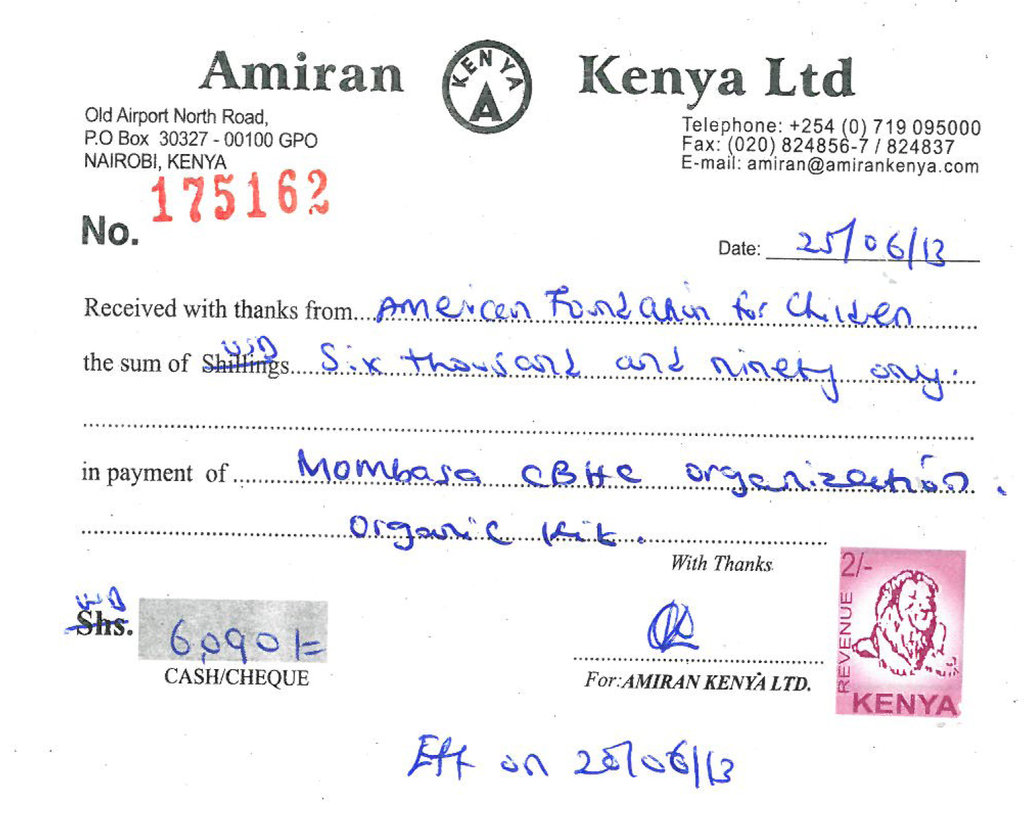 Amiran KENYA A Kenya Ltd
Old Airport North Road,
P.O Box 30327 - 00100 GPO
NAIROBI, KENYA
Telephone: +254 (0) 719 095000
Fax: (020) 824856-7 / 824837
E-mail: amiran@amirankenya.com
No. 175162
Date: 25/06/13
Received with thanks from American Foundation for Children
the sum of Shillings USD Six thousand and ninety only.
in payment of Mombasa CBHC organization.
organic kit.
With Thanks
USD
Shs. 6,090/=
CASH/CHEQUE
For: AMIRAN KENYA LTD.
2/-
REVENUE
KENYA
Eff on 20/06/13